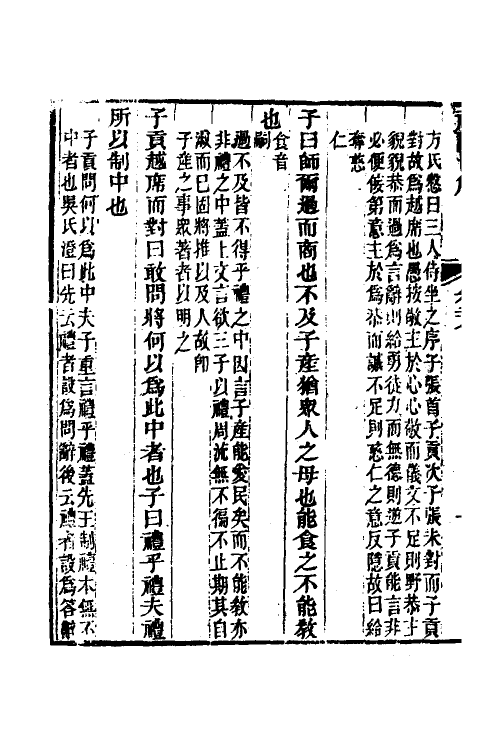 方氏慤曰三人侍坐之序子張首子貢次子張未對而子貢
對故爲越席也愚按敬主於心心敬而儀文不足則野恭主
貌貌恭而過爲言辭則給勇徒力而無德則逆子貢能言非
必便佞第意主於爲恭而讓不足則慈仁之意反隱故曰給
奪慈
仁
子曰師爾過而商也不及子產猶衆人之母也能食之不能敎
也
食音
嗣
過不及皆不得乎禮之中因言子產能愛民矣而不能敎亦
非禮之中蓋上文言欲三子以禮周流無不徧不止期其自
淑而已固將推以及人故即
子產之事衆著者以明之
子貢越席而對曰敢問將何以爲此中者也子曰禮乎禮夫禮
所以制中也
子貢問何以爲此中夫子重言禮乎禮蓋先王制禮本無不
中者也吳氏澄曰先云禮者設爲問辭後云禮者設爲答辭